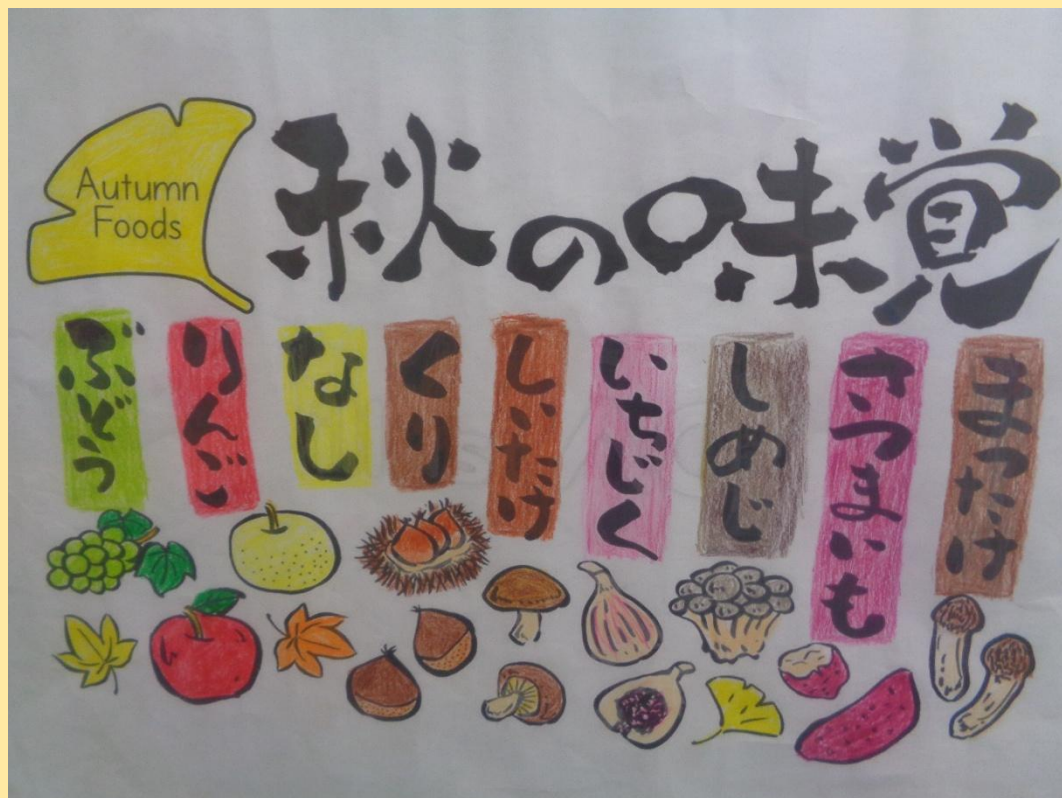 Autumn
Foods
秋の味覚
ぶどう
りんご
なし
くり
しいたけ
いちじく
しめじ
さつまいも
まつたけ